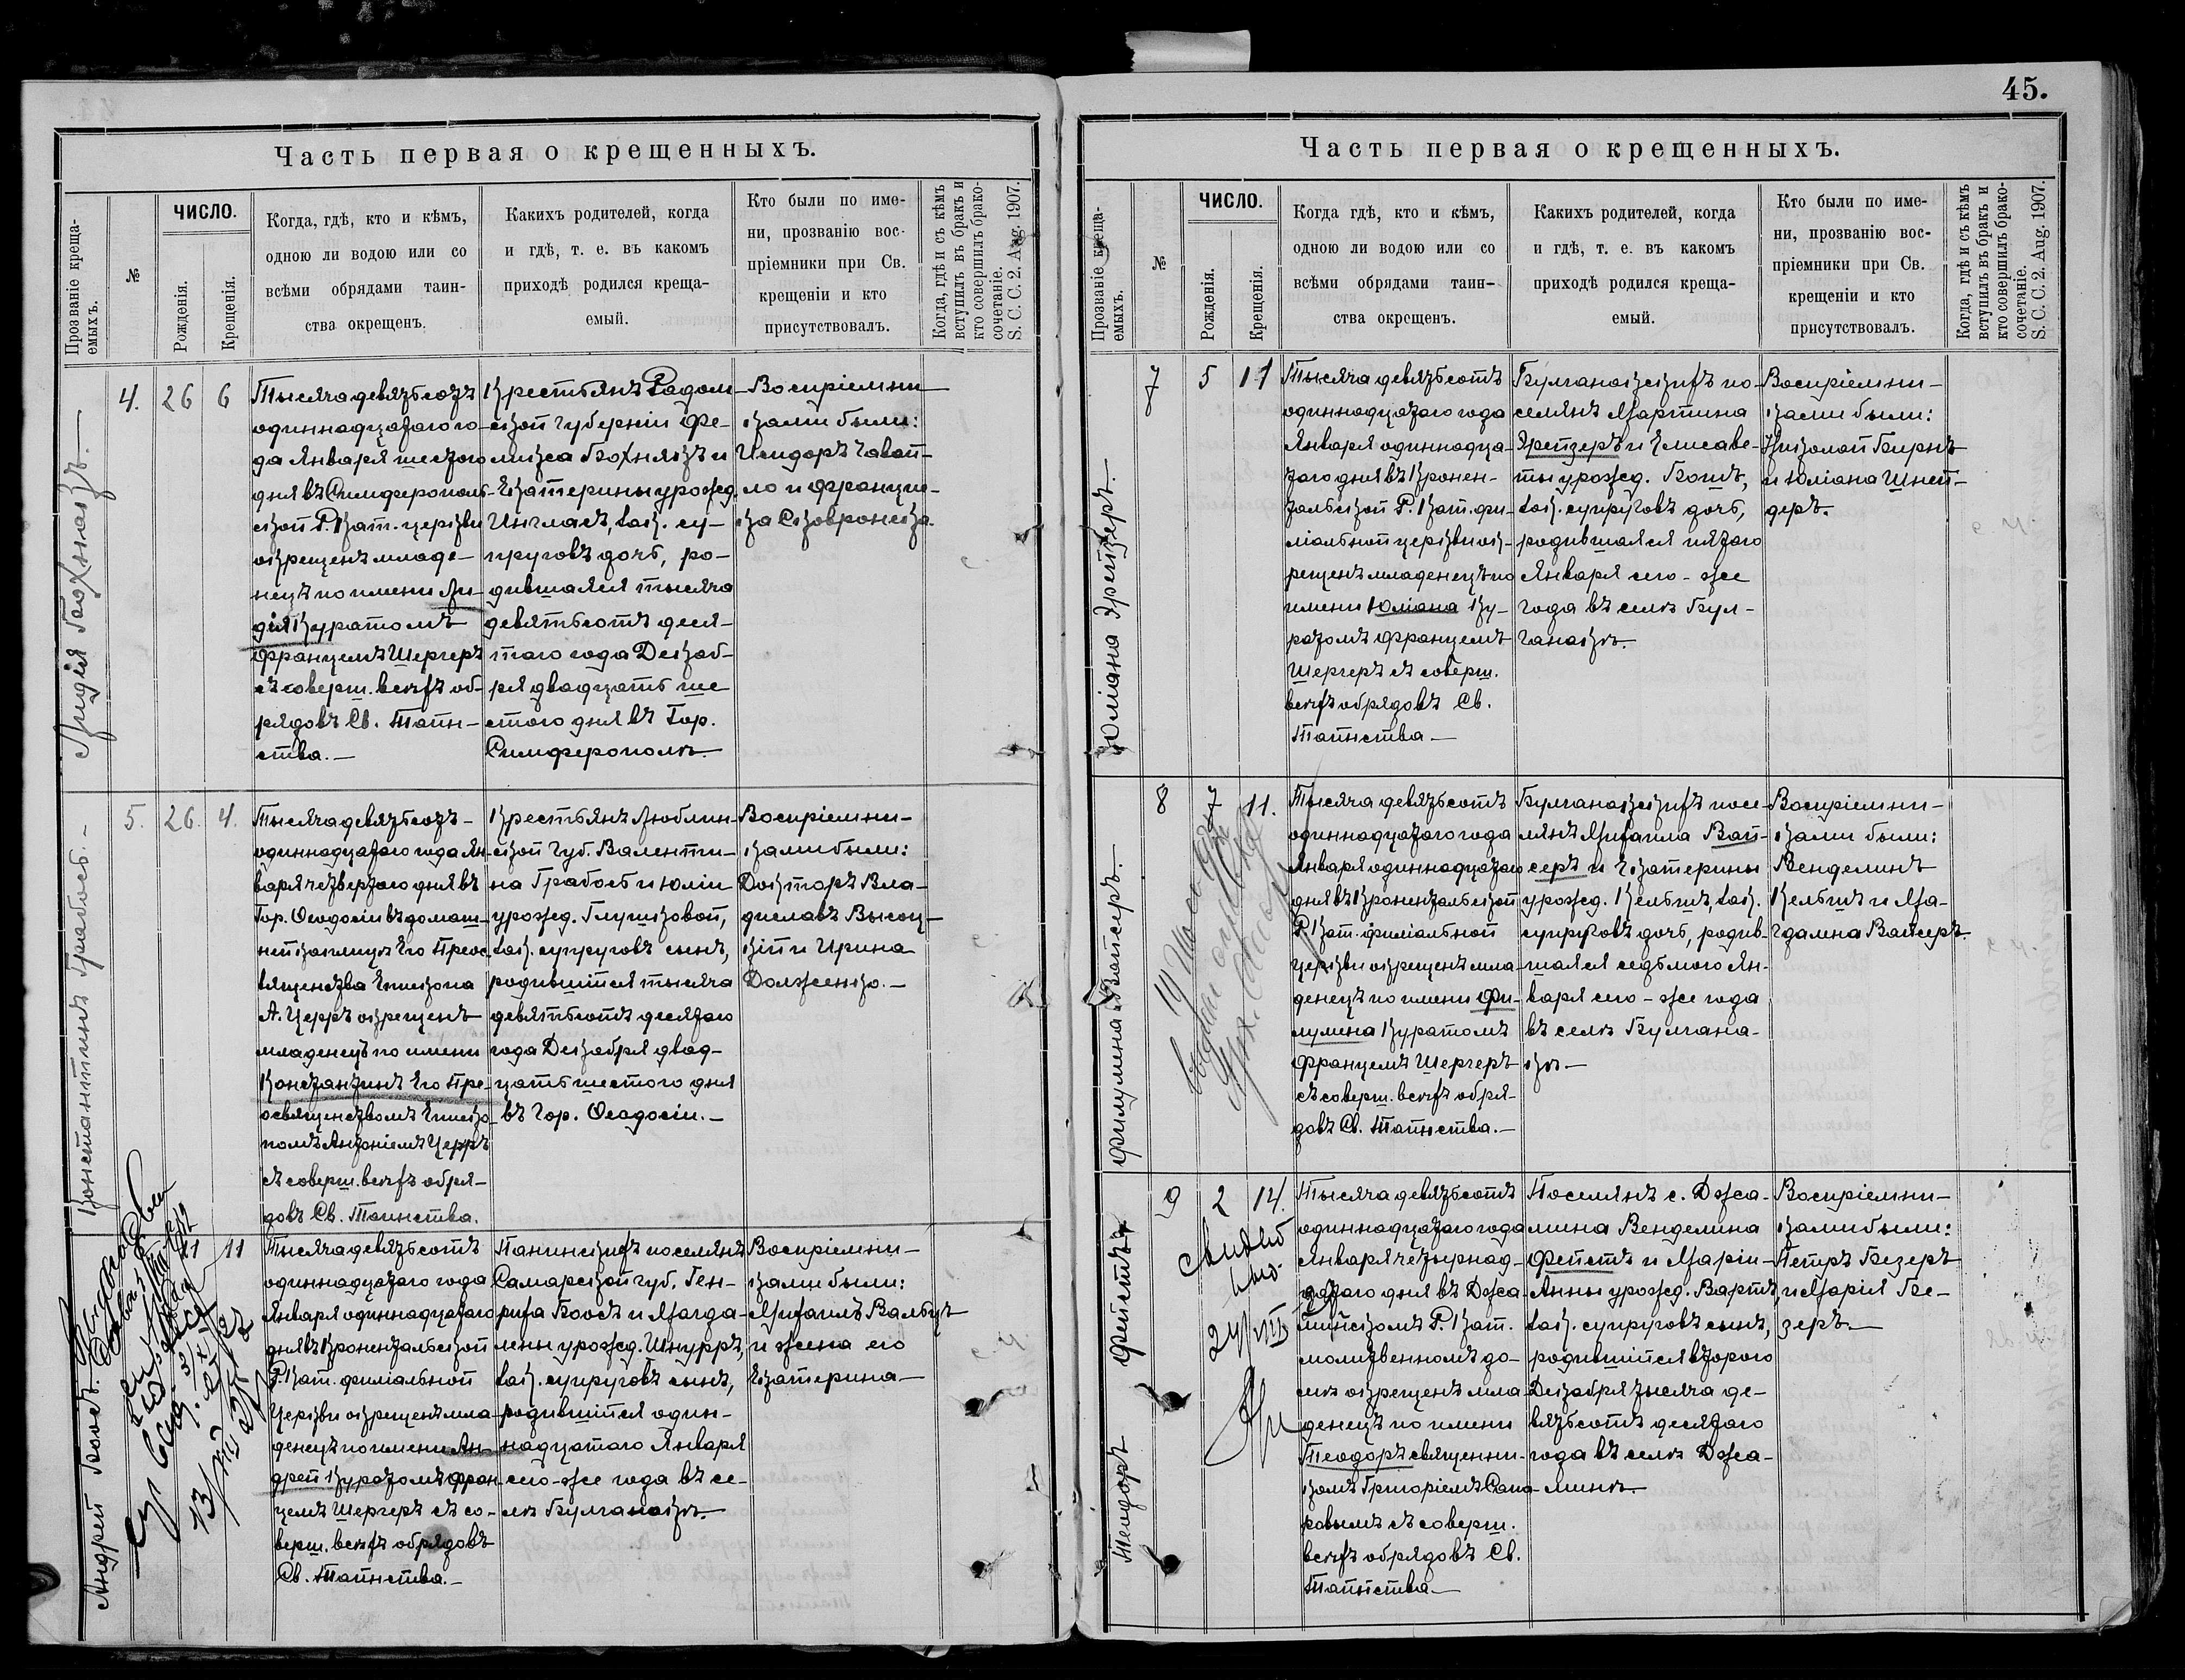 45.
Часть первая о крещенныхъ.
Прозваніе креща-
емыхъ.
№
ЧИСЛО.
Рожденія.
Крещенія.
Когда, гдѣ, кто и кѣмъ,
одною ли водою или со
всѣми обрядами таин-
ства окрещенъ.
Какихъ родителей, когда
и гдѣ, т. е. въ какомъ
приходѣ родился креща-
емый.
Кто были по име-
ни, прозванію вос-
пріемники при Св.
крещеніи и кто
присутствовалъ.
Когда, гдѣ и съ кѣмъ
вступилъ въ бракъ и
кто совершилъ брако-
сочетаніе.
S. C. C. 2. Aug. 1907.
Лидія Бохнакъ.
4.
26
6
Тысяча девятьсотъ
одиннадцатаго го-
да Января шестого
дня въ Симферополь-
ской Р. Кат. церкви
окрещенъ младе-
нецъ по имени Ли-
дія Куратомъ
Францемъ Шергеръ
съ соверш. всѣхъ об-
рядовъ Св. Таин-
ства.—
Крестьянъ Радом-
ской губерніи Фе-
ликса Бохнакъ и
Екатерины урожд.
Инглакъ, зак. су-
пруговъ дочь, ро-
дившаяся тысяча
девятьсотъ деся-
таго года Декаб-
ря двадцать ше
стого дня въ Гор.
Симферополѣ.
Воспріемни-
ками были:
Исидоръ Гавай-
ло и Францис-
ка Сковронска.
Константинъ Грабось.-
5.
26.
4.
Тысяча девятьсотъ-
одиннадцатаго года Ян-
варя четвертаго дня въ
Гор. Ѳеодосіи въ домаш-
ней каплицѣ Его Преос-
вященства Епископа
А. Церръ окрещенъ
младенецъ по имени
Константинъ Его Пре-
освященствомъ Еписко-
помъ Антоніемъ Церръ
съ соверш. всѣхъ обря-
довъ Св. Таинства.
Крестьянъ Люблин-
ской губ. Валенти-
на Грабось и Юліи
урожд. Глушковой,
зак. супруговъ сынъ,
родившійся тысяча
девятьсотъ десятаго
года Декабря двад-
цать шестого дня
въ гор. Ѳеодосіи.-
Воспріемни-
ками были:
Докторъ Вла-
диславъ Высоц-
кій и Ирина
Долженко.-
Андрей Боосъ.
11
11
Тысяча девятьсотъ
одиннадцатаго года
Января одиннадцатаго
дня въ Кронентальской
Р. Кат. филіальной
Церкви окрещенъ мла-
денецъ по имени Ан-
дрей Куратомъ Фран-
цемъ Шергеръ съ со-
верш. всѣхъ обрядовъ
Св. Таинства.-
Панинскихъ поселянъ
Самарской губ. Ген-
риха Боосъ и Магда-
лены урожд. Шнурръ,
зак. супруговъ сынъ,
родившійся один-
надцатаго Января
сего-же года въ се-
лѣ Булганакъ.
Воспріемни-
ками были:
Михаилъ Вальцъ
и жена его
Екатерина-
Часть первая о крещенныхъ.
Прозваніе креща-
емыхъ.
№
ЧИСЛО.
Рожденія.
Крещенія.
Когда гдѣ, кто и кѣмъ,
одною ли водою или со
всѣми обрядами таин-
ства окрещенъ.
Какихъ родителей, когда
и гдѣ, т. е. въ какомъ
приходѣ родился креща-
емый.
Кто были по име-
ни, прозванію вос-
пріемники при Св.
крещеніи и кто
присутствовалъ.
Когда, гдѣ и съ кѣмъ
вступилъ въ бракъ и
кто совершилъ брако-
сочетаніе.
S. C. C. 2. Aug. 1907.
Юліана Эрейзеръ.
7
5
11
Тысяча девятьсотъ
одиннадцатаго года
Января одиннадца-
таго дня въ Кронен-
тальской Р. Кат. фи-
ліальной церкви ок-
рещенъ младенецъ по
имени Юліана Ку-
ратомъ Францемъ
Шергеръ съ соверш.
всѣхъ обрядовъ Св.
Таинства-
Булганакскихъ по-
селянъ Мартина
Эрейзеръ и Елисаве-
ты урожд. Бошъ,
зак. супруговъ дочь,
родившаяся пятаго
Января сего-же
года въ селѣ Бул-
ганакѣ.
Воспріемни-
ками были:
Николай Бирнъ
и Юліана Шней-
деръ.
Филумина Вайсеръ.-
8
7
11.
Тысяча девятьсотъ
одиннадцатаго года
Января одиннадцатаго
дня въ Кронентальской
Р. Кат. филіальной
церкви окрещенъ мла-
денецъ по имени Фи-
лумина Куратомъ
Францемъ Шергеръ
съ соверш. всѣхъ обря-
довъ Св. Таинства.-
Булганакскихъ посе-
лянъ Михаила Вай-
серъ и Екатерины
урожд. Кельшъ, зак.
супруговъ дочь, родив-
шаяся седьмого Ян-
варя сего-же года
въ селѣ Булгана-
кѣ.-
Воспріемни-
ками были:
Венделинъ
Кельшъ и Ма-
гдалена Вайсеръ.
Теодоръ Фейстъ
9
2
14.
24/VIII
Тысяча девятьсотъ
одиннадцатаго года
Января четырнад-
цатаго дня въ Джа-
минскомъ Р. Кат.
молитвенномъ до-
мѣ окрещенъ мла
денецъ по имени
Теодоръ священни-
комъ Григоріемъ Сапа-
ровымъ съ соверш.
всѣхъ обрядовъ Св.
Таинства-
Поселянъ с. Джа-
мина Венделина
Фейстъ и Маріи-
Анны урожд. Вартъ,
зак. супруговъ сынъ,
родившійся второго
Декабря тысяча де-
вятьсотъ десятаго
года въ селѣ Джа-
минѣ.
Воспріемни-
ками были:
Петръ Безеръ
и Марія Бе-
зеръ.-